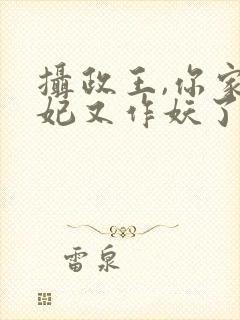 攝政王,你家
妃又作妖了
雷泉